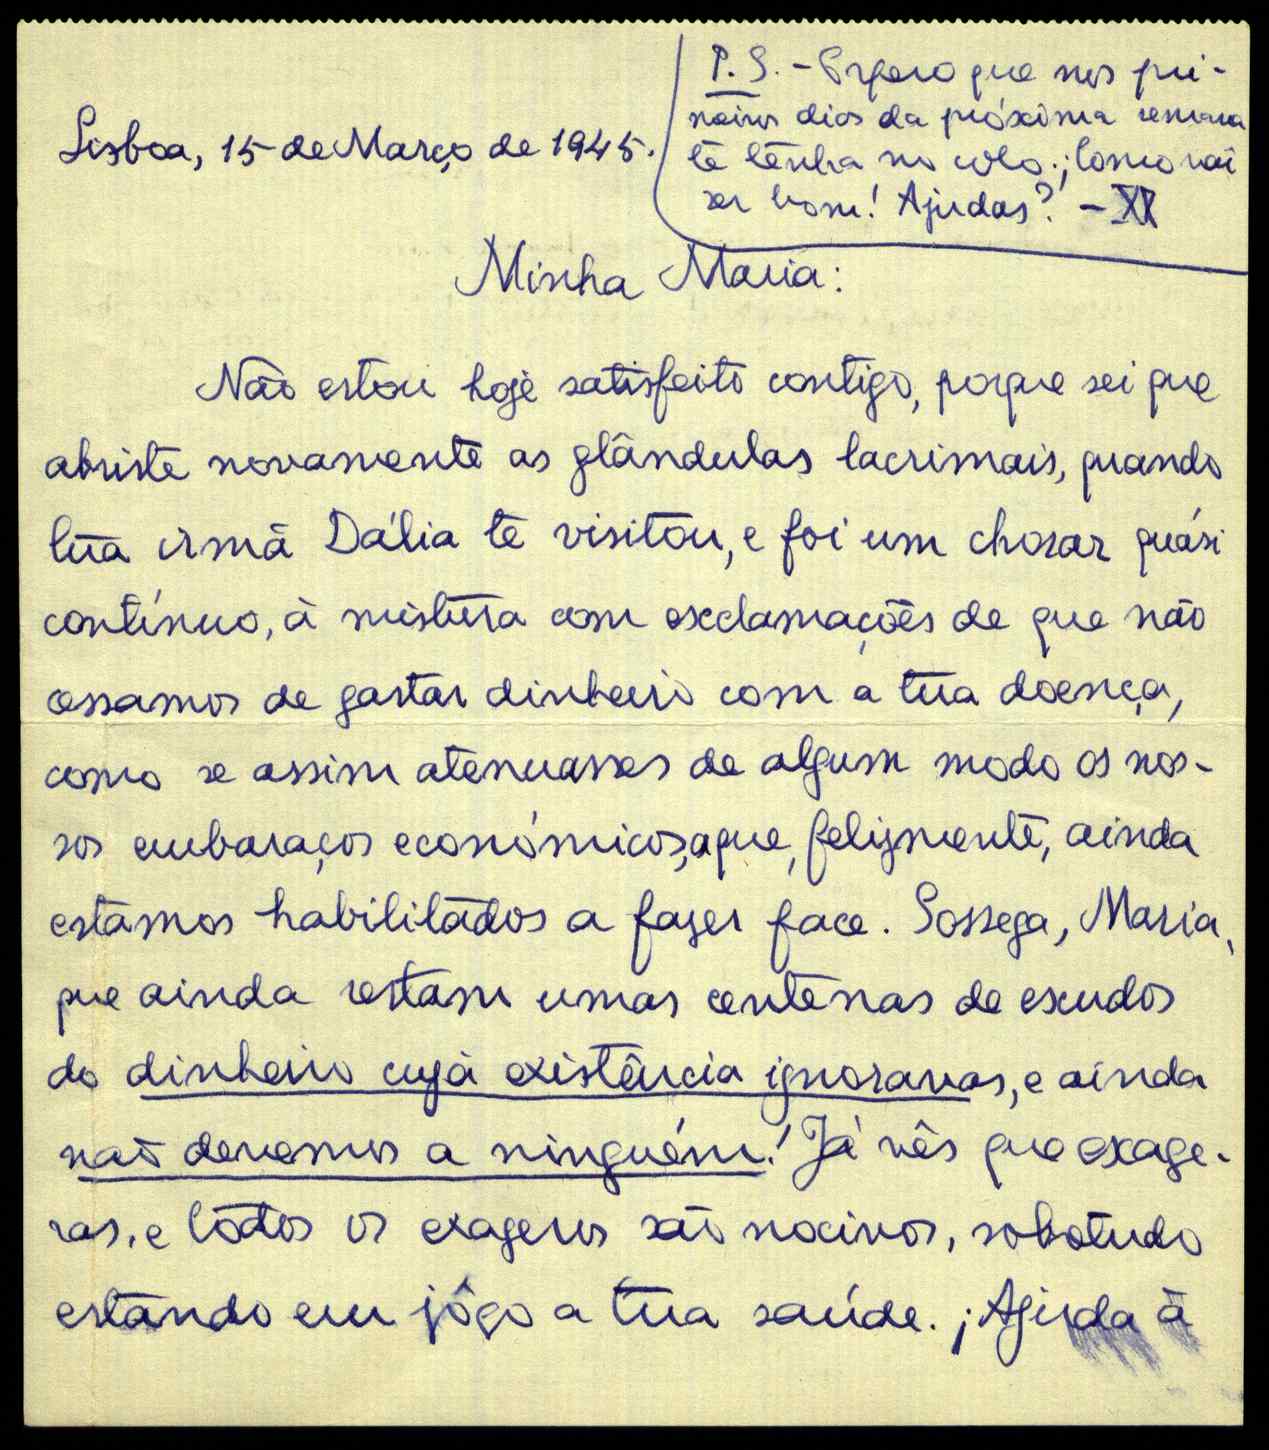 Lisboa, 15 de Março de 1945.
P. S. - Espero que nos pri-
meiros dias da próxima semana
te tenha no colo. ¡Como vai
ser bom! Ajudas? -
Minha Maria:
Não estou hoje satisfeito contigo, porque sei que
abriste novamente as glândulas lacrimais, quando
tua irmã Dália te visitou, e foi um chorar quási
contínuo, à mistura com exclamações de que não
cessamos de gastar dinheiro com a tua doença,
como se assim atenuasses de algum modo os nos-
sos embaraços económicos, a que, felizmente, ainda
estamos habilitados a fazer face. Sossega, Maria,
que ainda restam umas centenas de escudos
do dinheiro cuja existência ignoravas, e ainda
não devemos a ninguém! Já vês que exage-
ras, e todos os exageros são nocivos, sobretudo
estando em jôgo a tua saúde. ¡Ajuda à